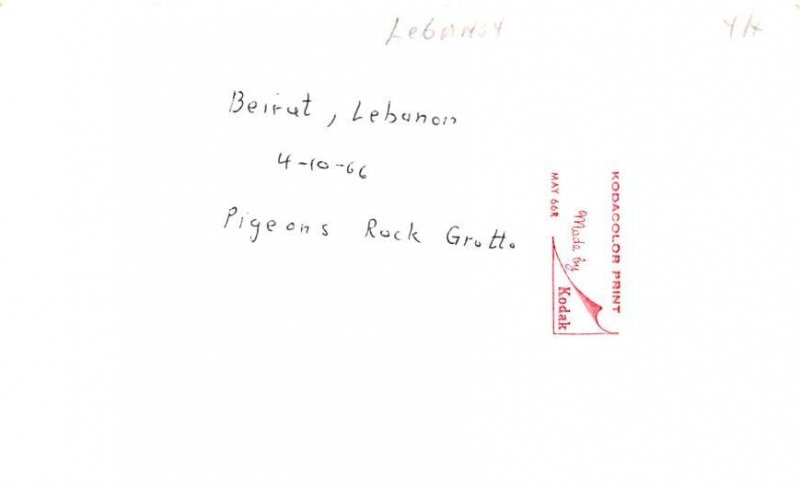 Lebanon
Beirut, Lebanon
4-10-66
Pigeons Rock Grotto
KODACOLOR PRINT
Made by
Kodak
MAY 66R